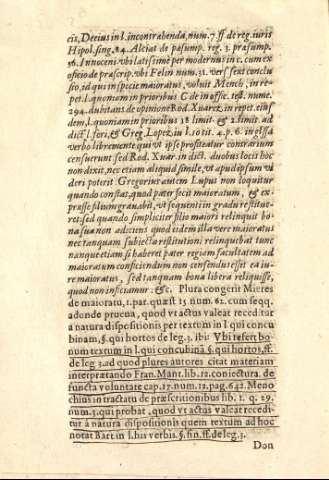 cis, Decius in l. incontrahenda, num. 7. ff. de reg. iuris
Hipol. sing. 84. Alciat de pæsump. reg. 3. præsump.
36. Innoceni. vbi latissime per modernus in c. cum ex
oficio de præscrip. vbi Felin num. 31. vers. sext conclu
sio, id qui in specie maioratus, voluit Mench, in re
pet. l. quoniam in prioribus C. de in offic. test. nume.
294. dubitans de opinione Rod. Xuarez, in repet. eiusf
dem, l. quoniam in prioribus 18 limit. & 2. limit. ad
dict l. fori, & Greg. Lopez, in l. 10 tit. 4. p. 6. in glssa
verbo libremente qui vt ipse profiteatur contrarium
censuerunt sed Rod. Xuar. in dict. duobus locis hoc
non dixit, nec etiam aliquid simile, vt apud ipsum vi
deri poterit Gregorius autem Lupus non loquitur
quando constat, quod pater fecit maioratum, & ex-
presse filium grauabit, vt sequenti in gradu restitue-
ret: sed quando simpliciter filio maiori relinquit bo
na sua non adiciens quod eidem illa vere maioratus
nec tanquam subiecta restitutioni relinquebat tunc
nanque etiam si haberet pater regiam facultatem ad
maioratum conficiendum non censendus esset ea iu-
re maioratus, sed tanquam bona libera reliquisse,
quod non inficiamur: &c. Plura congerit Mieres
de maioratu, 1. par. quæst 13 num. 62. cum seqq.
adonde prueua, quod vt actus valeat receditur
a natura dispositionis per textum in l. qui concu
binam, §. qui hortos de leg. 3. ibi: Vbi refert bo-
num textum in l. qui concubinā §. qui horto, ff.
de leg. 3. ad quod plures autores citat materiam
interpretando Fran. Mant. lib. 12. coniectura. de
functa voluntate cap. 17. num. 12. pag. 642. Meno
chius in tractatu de præscritionibus lib. 1. q. 29.
num. 3. qui probat, quod vt actus valeat recedi-
tur à natura dispositionis quem textum ad hoc
notat Bart in l. his verbis. §. fin. ff. de leg. 3.
Don